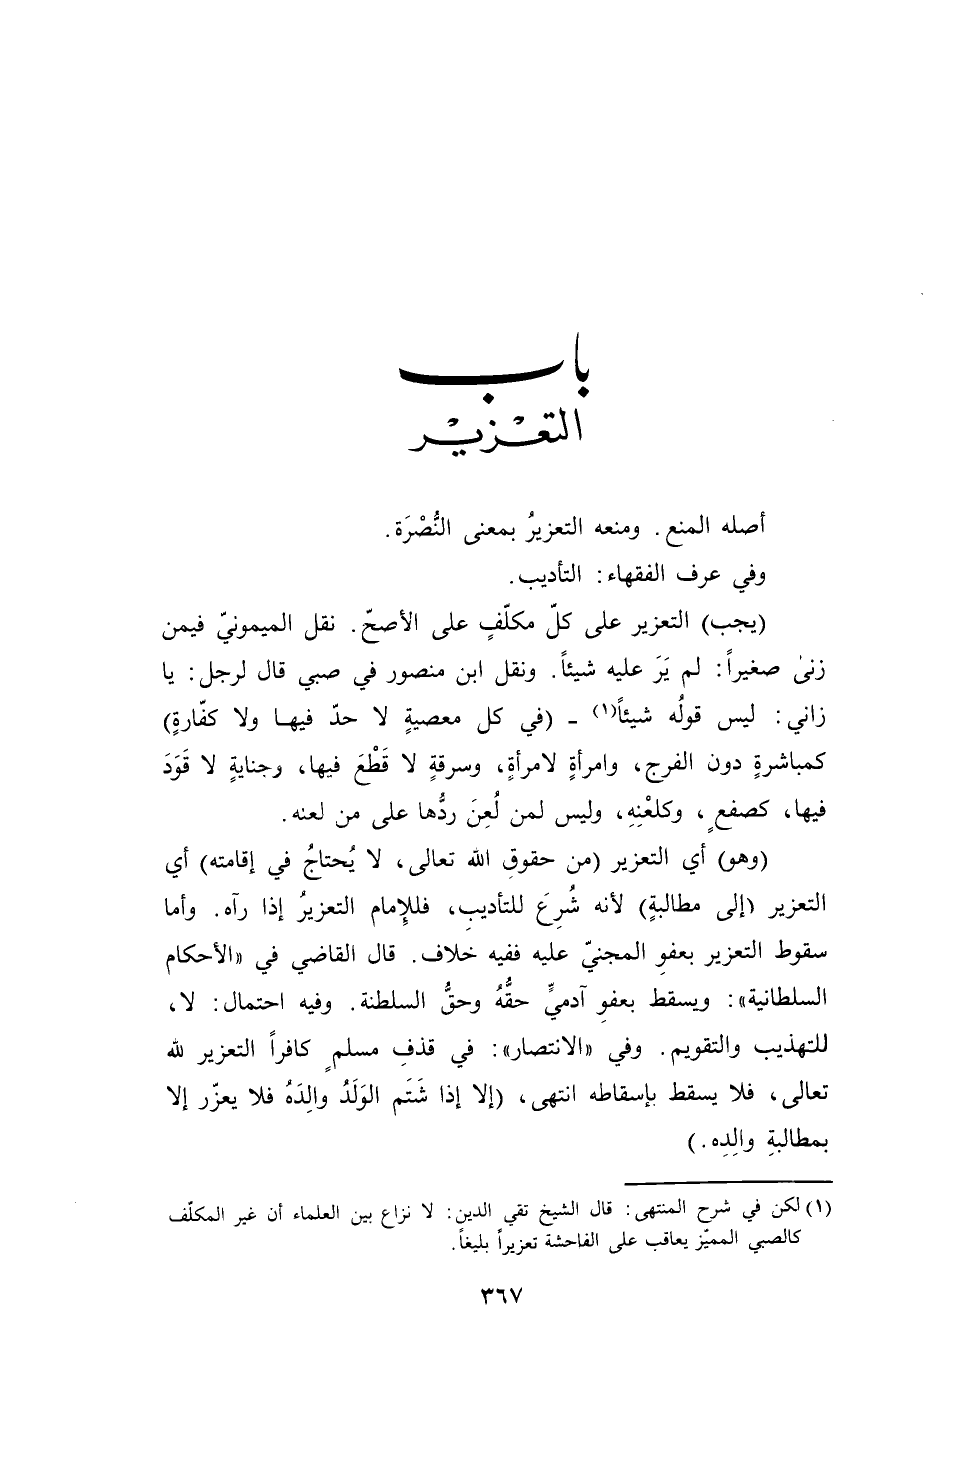 باب
التعْزيْر
أصله المنع. ومنعه التعزيرُ بمعنى النُّصْرَة.
وفي عرف الفقهاء: التأديب.
(يجب) التعزير على كلّ مكلّفٍ على الأصحّ. نقل الميمونيّ فيمن
زنىٰ صغيراً: لم يَرَ عليه شيئاً. ونقل ابن منصور في صبي قال لرجل: يا
زاني: ليس قولُه شيئاً(١) ـ (في كل معصيةٍ لا حدّ فيها ولا كفّارةٍ)
كمباشرةٍ دون الفرج، وامرأةٍ لامرأةٍ، وسرقةٍ لا قَطْعَ فيها، وجنايةٍ لا قَوَدَ
فيها، كصفعٍ، وكلعْنِهِ، وليس لمن لُعِنَ ردُّها على من لعنه.
(وهو) أي التعزير (من حقوقِ الله تعالى، لا يُحتاجُ في إقامته) أي
التعزير (إلى مطالبةٍ) لأنه شُرِعَ للتأديبِ، فللإمام التعزيرُ إذا رآه. وأما
سقوط التعزير بعفوِ المجنيّ عليه ففيه خلاف. قال القاضي في «الأحكام
السلطانية»: ويسقط بعفوِ آدميٍّ حقُّهُ وحقُّ السلطنة. وفيه احتمال: لا،
للتهذيب والتقويم. وفي «الانتصار»: في قذفِ مسلمٍ كافراً التعزير لله
تعالى، فلا يسقط بإسقاطه انتهى، (إلا إذا شَتَم الوَلَدُ والِدَهُ فلا يعزّر إلا
بمطالبةِ والِدِه.)
(١) لكن في شرح المنتهى: قال الشيخ تقي الدين: لا نزاع بين العلماء أن غير المكلّف
كالصبي المميّز يعاقب على الفاحشة تعزيراً بليغاً.
٣٦٧